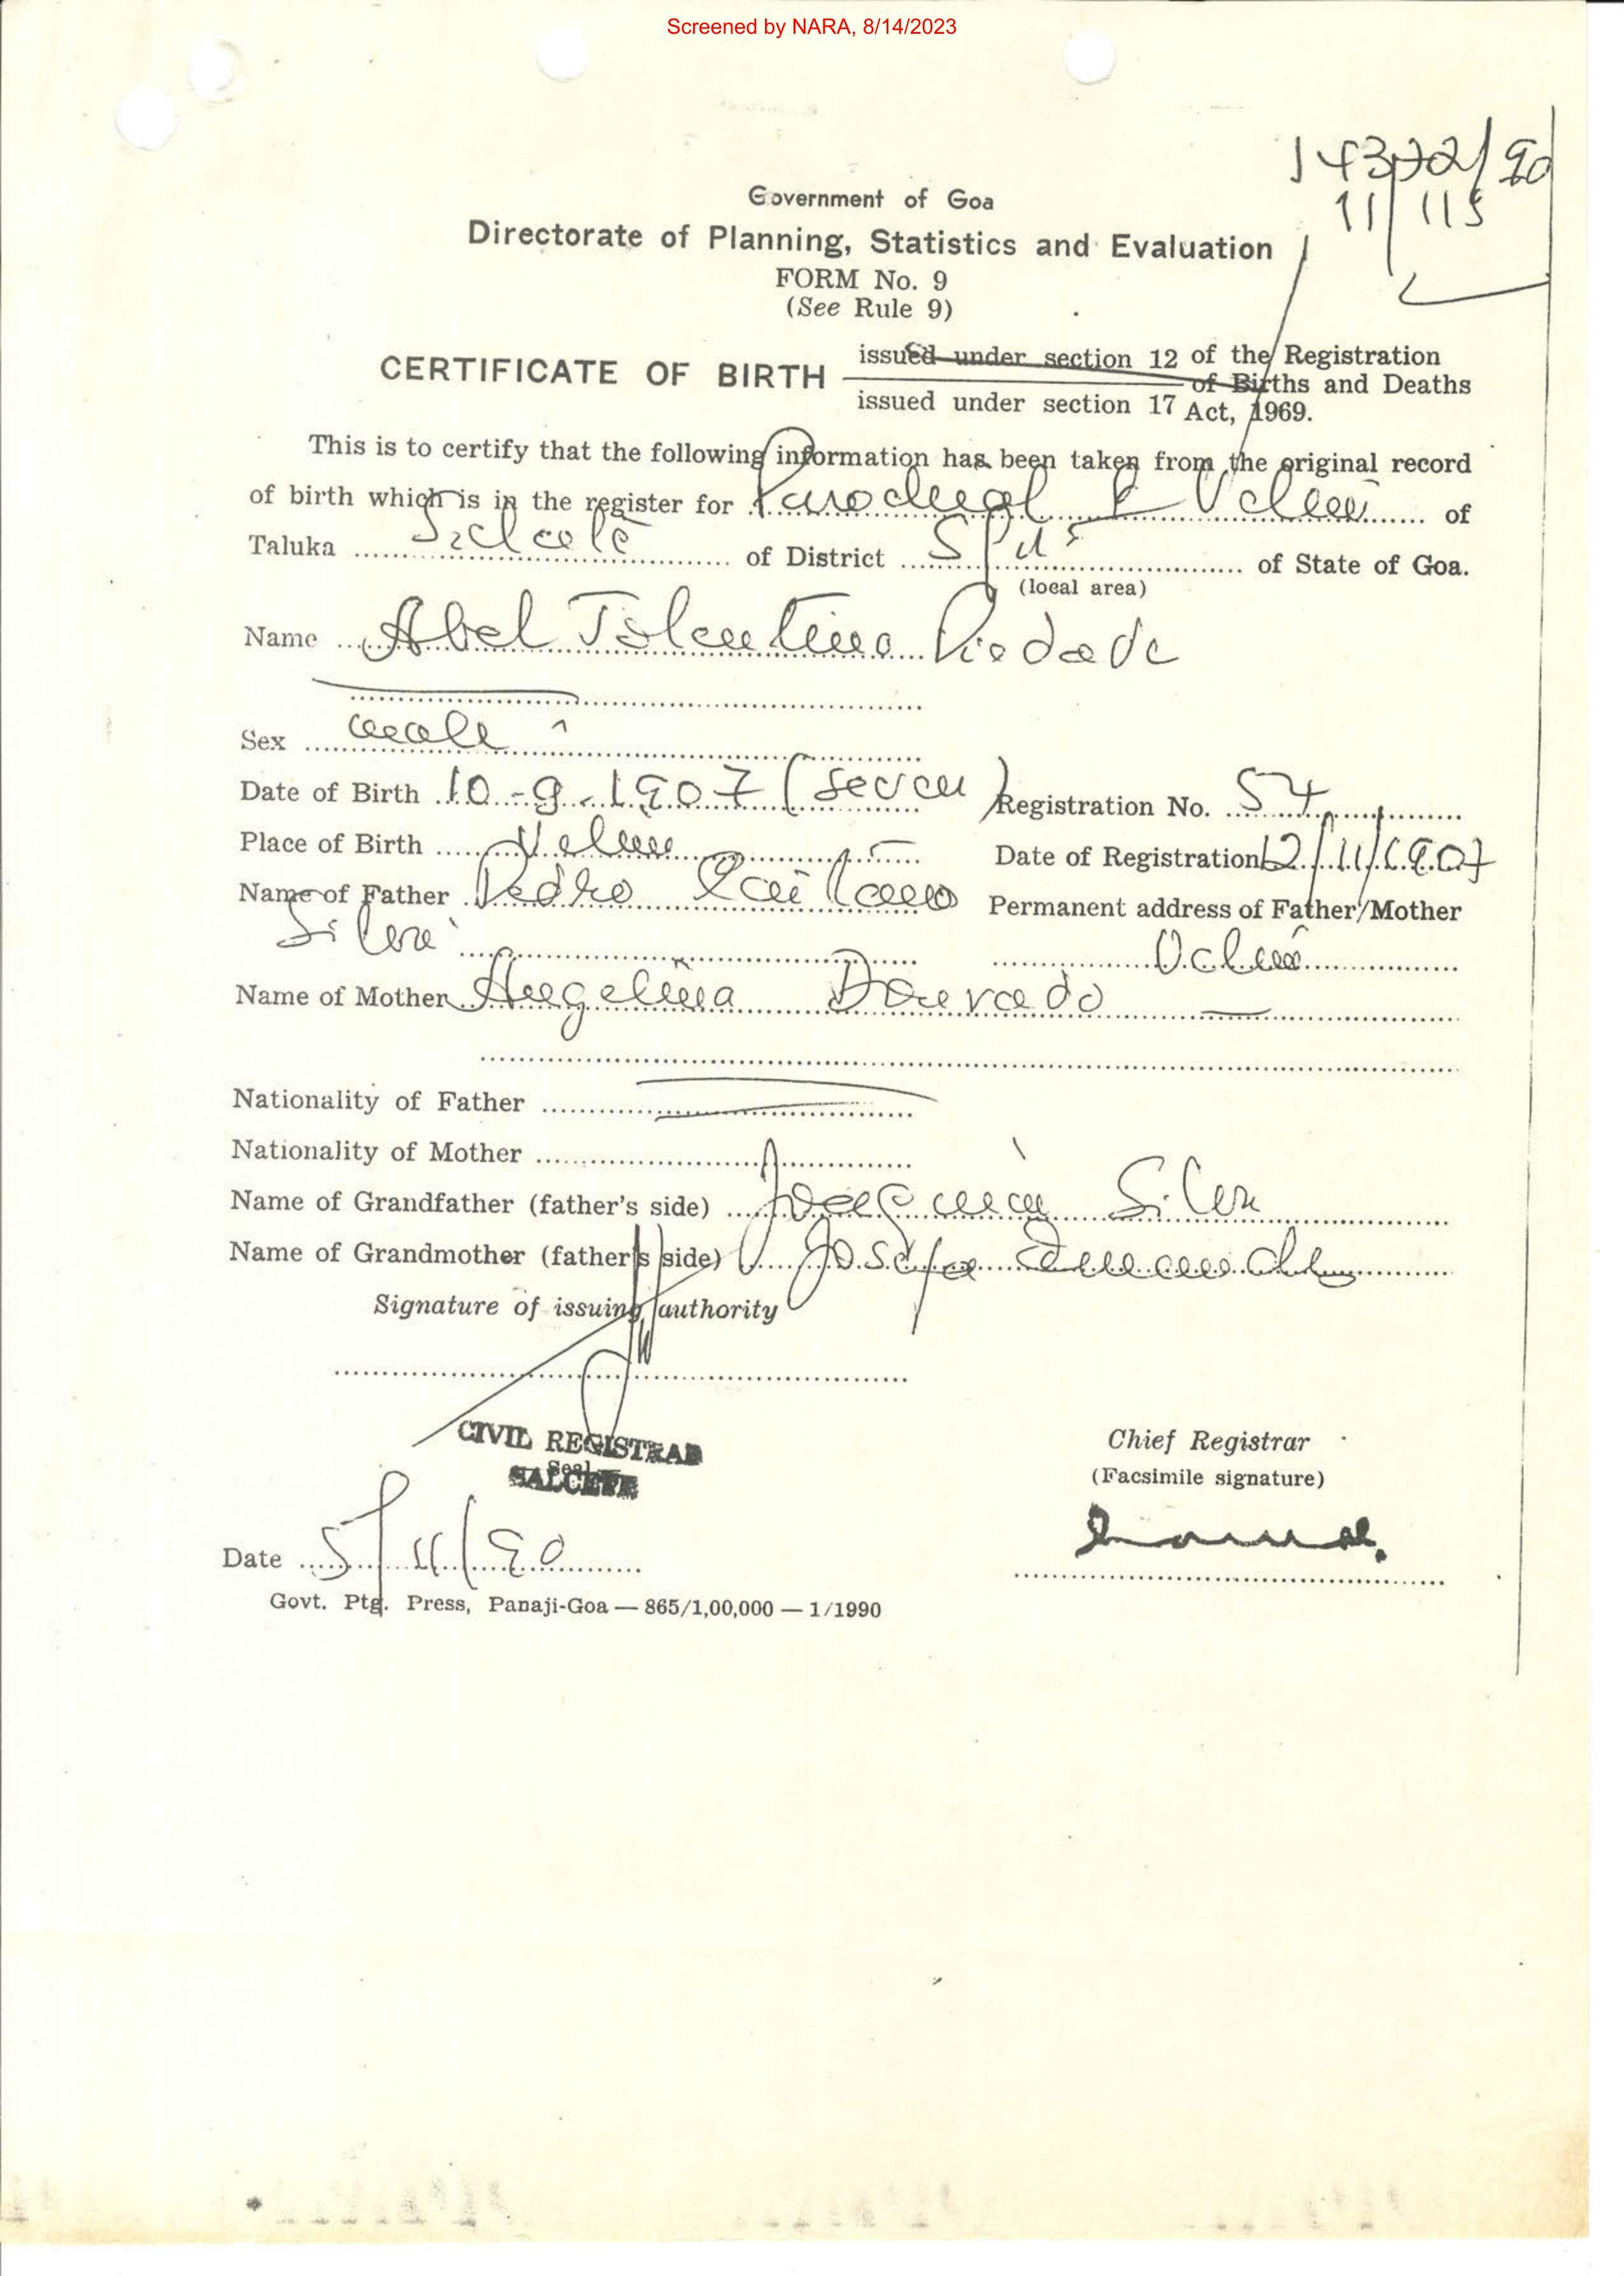 Screened by NARA, 8/14/2023
14372/90
11/115
Government of Goa
Directorate of Planning, Statistics and Evaluation
FORM No. 9
(See Rule 9)
CERTIFICATE OF BIRTH issued under section 12 of the Registration
of Births and Deaths
issued under section 17 Act, 1969.
This is to certify that the following information has been taken from the original record
of birth which is in the register for of
Taluka Salcete of District of State of Goa.
(local area)
Name Abel Tolentino Piedade
Sex male
Date of Birth 10-9-1907 (seven) Registration No. 54
Place of Birth Velim Date of Registration 12/11/1907
Name of Father Pedro Caitano Permanent address of Father/Mother
Silva Velim
Name of Mother Angelina Dourado
Nationality of Father
Nationality of Mother
Name of Grandfather (father's side) Silva
Name of Grandmother (father's side) Josefa
Signature of issuing authority
CIVIL REGISTRAR
Seal
SALCETE
Chief Registrar
(Facsimile signature)
Date 5/11/90
Govt. Ptg. Press, Panaji-Goa — 865/1,00,000 — 1/1990